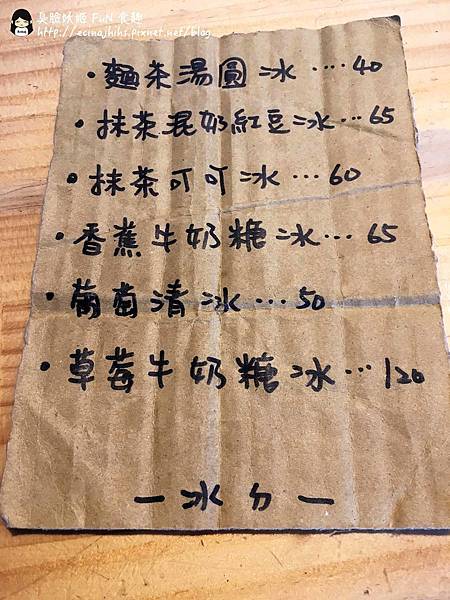 長臉妖姬 FUN 食趣
http://ecinajhihs.pixnet.net/blog
•麵茶湯圓冰····40
•抹茶混奶紅豆冰···65
•抹茶叮叮冰···60
•香蕉牛奶糖冰···65
•葡萄清冰···50
•草莓牛奶糖冰···120
—冰ㄉ—